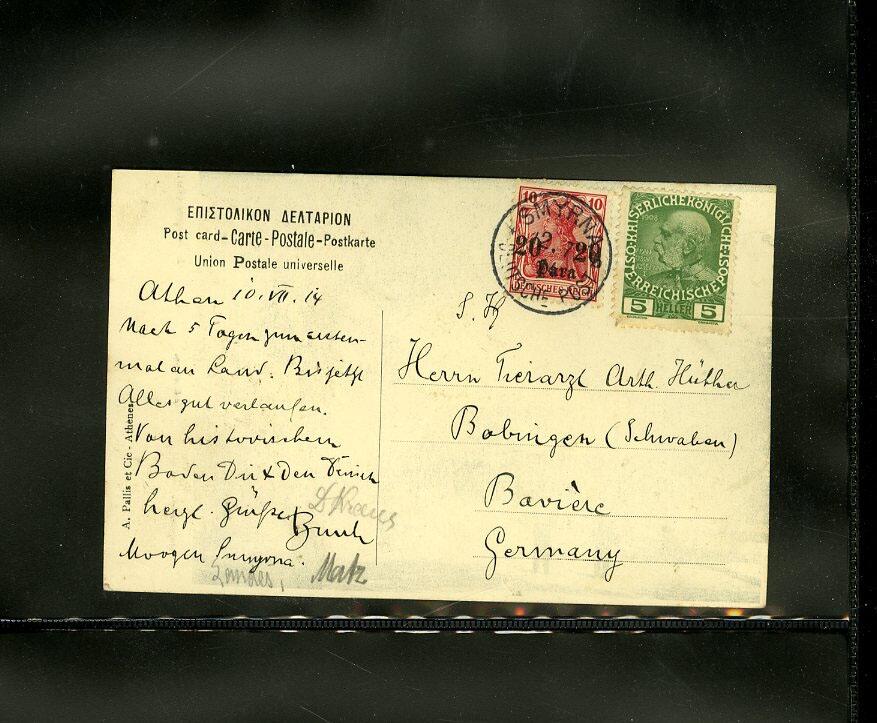 ΕΠΙΣΤΟΛΙΚΟΝ ΔΕΛΤΑΡΙΟΝ
Post card-Carte-Postale-Postkarte
Union Postale universelle
Athen 10. VII. 14
Nach 5 Tagen zum ersten-
mal an Land. Bis jetzt
Alles gut verlaufen.
Von historischem
Boden Dir & Den
herzl. Grüße
Morgen Smyrna.
Matz
A. Pallis et Cie - Athenes
10 10
20 20
Para
DEUTSCHES REICH
SMYRNA
12. 7
DEUTSCHE POST
1908
KAISERLICHE KÖNIGLICHE
ÖSTERREICHISCHE POST
5 HELLER 5
S. H
Herrn Tierarzt Arth. Hüther
Bobingen (Schwaben)
Bavière
Germany